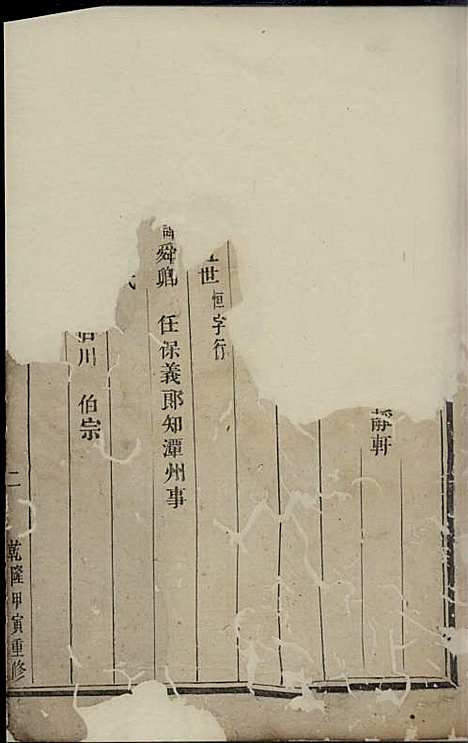 靜軒
世 恒字行
舜卿 任保義郎知潭州事
川 伯宗
二
乾隆甲寅重修